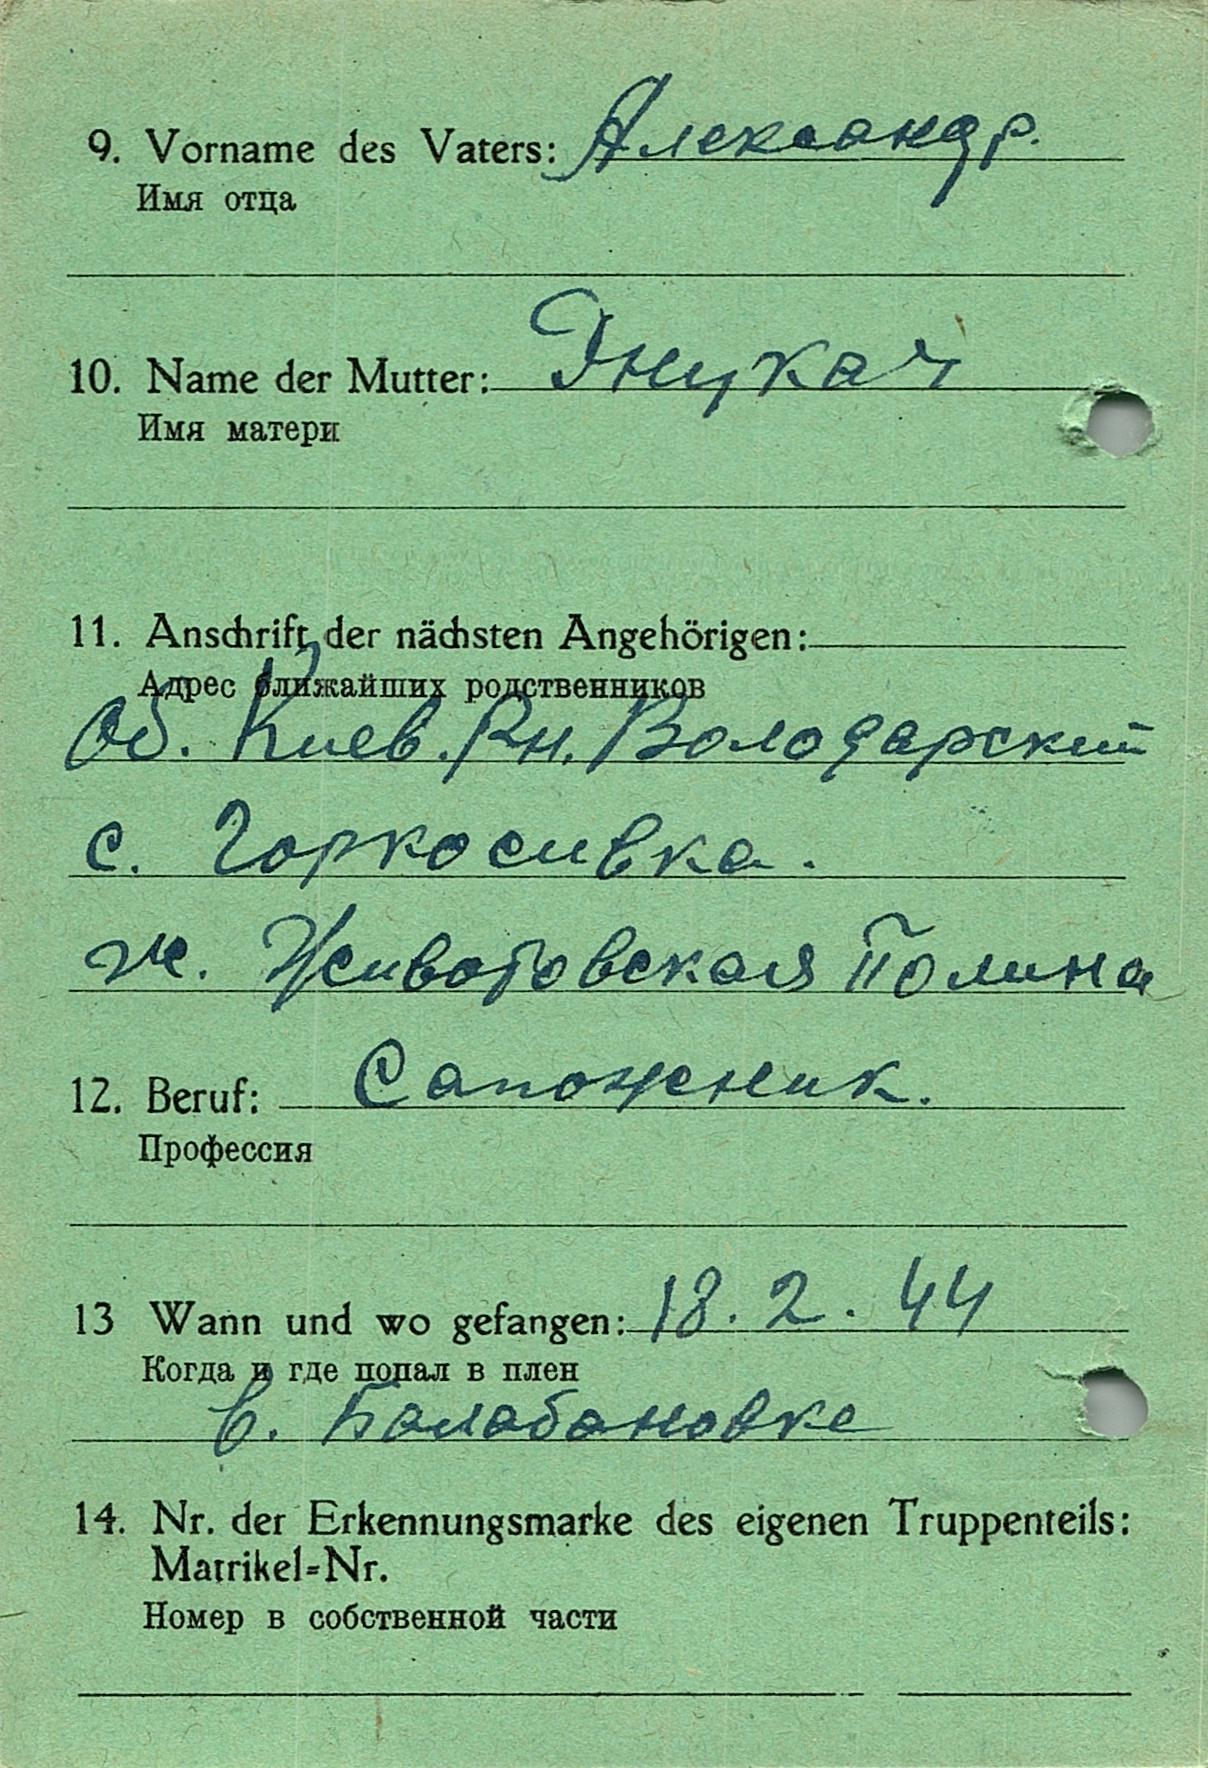 9. Vorname des Vaters: Александр.
Имя отца
10. Name der Mutter: Гнукач
Имя матери
11. Anschrift der nächsten Angehörigen:
Адрес ближайших родственников
Об. Киев. Рн. Володарский
с. Горкосивка.
ж. Животовская Полина
12. Beruf: Сапожник.
Профессия
13 Wann und wo gefangen: 18. 2. 44
Когда и где попал в плен
в. Балабановке
14. Nr. der Erkennungsmarke des eigenen Truppenteils:
Matrikel=Nr.
Номер в собственной части